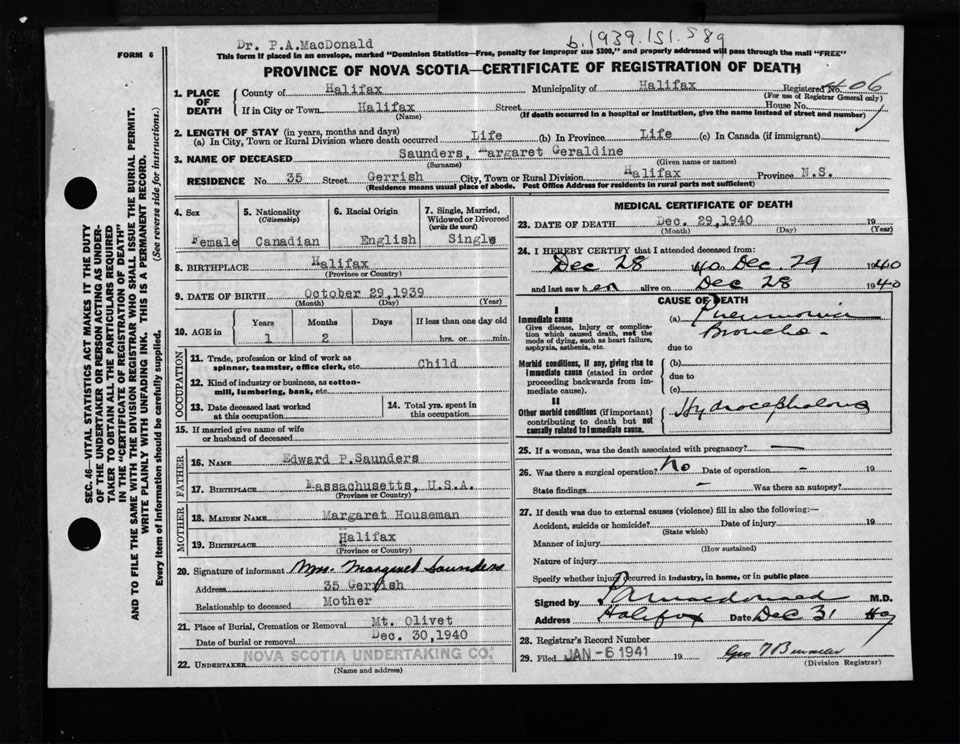 Dr. P.A.MacDonald
b.1939.151.589
FORM 6
This form if placed in an envelope, marked "Dominion Statistics—Free, penalty for improper use $300," and properly addressed will pass through the mail "FREE"
PROVINCE OF NOVA SCOTIA—CERTIFICATE OF REGISTRATION OF DEATH
1. PLACE OF DEATH
County of Halifax Municipality of Halifax Registered No. 406
(For use of Registrar General only)
If in City or Town Halifax Street House No.
(Name) (If death occurred in a hospital or institution, give the name instead of street and number)
2. LENGTH OF STAY (in years, months and days)
(a) In City, Town or Rural Division where death occurred Life (b) In Province Life (c) In Canada (if immigrant)
3. NAME OF DECEASED Saunders, Margaret Geraldine
(Surname) (Given name or names)
RESIDENCE No. 35 Street Gerrish City, Town or Rural Division Halifax Province N.S.
(Residence means usual place of abode. Post Office Address for residents in rural parts not sufficient)
4. Sex 5. Nationality (Citizenship) 6. Racial Origin 7. Single, Married, Widowed or Divorced (write the word)
Female Canadian English Single
8. BIRTHPLACE Halifax
(Province or Country)
9. DATE OF BIRTH October 29,1939
(Month) (Day) (Year)
10. AGE in Years Months Days If less than one day old
1 2 hrs. or min.
OCCUPATION
11. Trade, profession or kind of work as spinner, teamster, office clerk, etc. Child
12. Kind of industry or business, as cotton-mill, lumbering, bank, etc.
13. Date deceased last worked at this occupation
14. Total yrs. spent in this occupation
15. If married give name of wife or husband of deceased
FATHER
16. NAME Edward P.Saunders
17. BIRTHPLACE Massachusetts, U.S.A.
(Province or Country)
MOTHER
18. MAIDEN NAME Margaret Houseman
19. BIRTHPLACE Halifax
(Province or Country)
20. Signature of informant Mrs. Margaret Saunders
Address 35 Gerrish
Relationship to deceased Mother
21. Place of Burial, Cremation or Removal Mt. Olivet
Date of burial or removal Dec. 30,1940
22. UNDERTAKER NOVA SCOTIA UNDERTAKING CO.
(Name and address)
MEDICAL CERTIFICATE OF DEATH
23. DATE OF DEATH Dec. 29,1940 19
(Month) (Day) (Year)
24. I HEREBY CERTIFY that I attended deceased from:
Dec 28 40 Dec. 29 1940
and last saw her alive on Dec 28 1940
CAUSE OF DEATH
I
Immediate cause (a) Pneumonia
Give disease, injury or complication which caused death, not the mode of dying, such as heart failure, asphyxia, asthenia, etc.
Broncho-
due to
Morbid conditions, if any, giving rise to immediate cause (stated in order proceeding backwards from immediate cause).
(b)
due to
(c)
II
Other morbid conditions (if important) contributing to death but not causally related to immediate cause.
Hydrocephalous
25. If a woman, was the death associated with pregnancy? —
26. Was there a surgical operation? No Date of operation - 19
State findings - Was there an autopsy?
27. If death was due to external causes (violence) fill in also the following:—
Accident, suicide or homicide? Date of injury 19
(State which)
Manner of injury
(How sustained)
Nature of injury
Specify whether injury occurred in industry, in home, or in public place
Signed by P A Macdonald M.D.
Address Halifax Date Dec 31 40
28. Registrar's Record Number
29. Filed JAN -6 1941 19
(Division Registrar)
SEC. 46—VITAL STATISTICS ACT MAKES IT THE DUTY
OF THE UNDERTAKER OR PERSON ACTING AS UNDER-
TAKER TO OBTAIN ALL THE PARTICULARS REQUIRED
IN THE "CERTIFICATE OF REGISTRATION OF DEATH"
AND TO FILE THE SAME WITH THE DIVISION REGISTRAR WHO SHALL ISSUE THE BURIAL PERMIT.
WRITE PLAINLY WITH UNFADING INK. THIS IS A PERMANENT RECORD.
Every item of information should be carefully supplied. (See reverse side for instructions.)